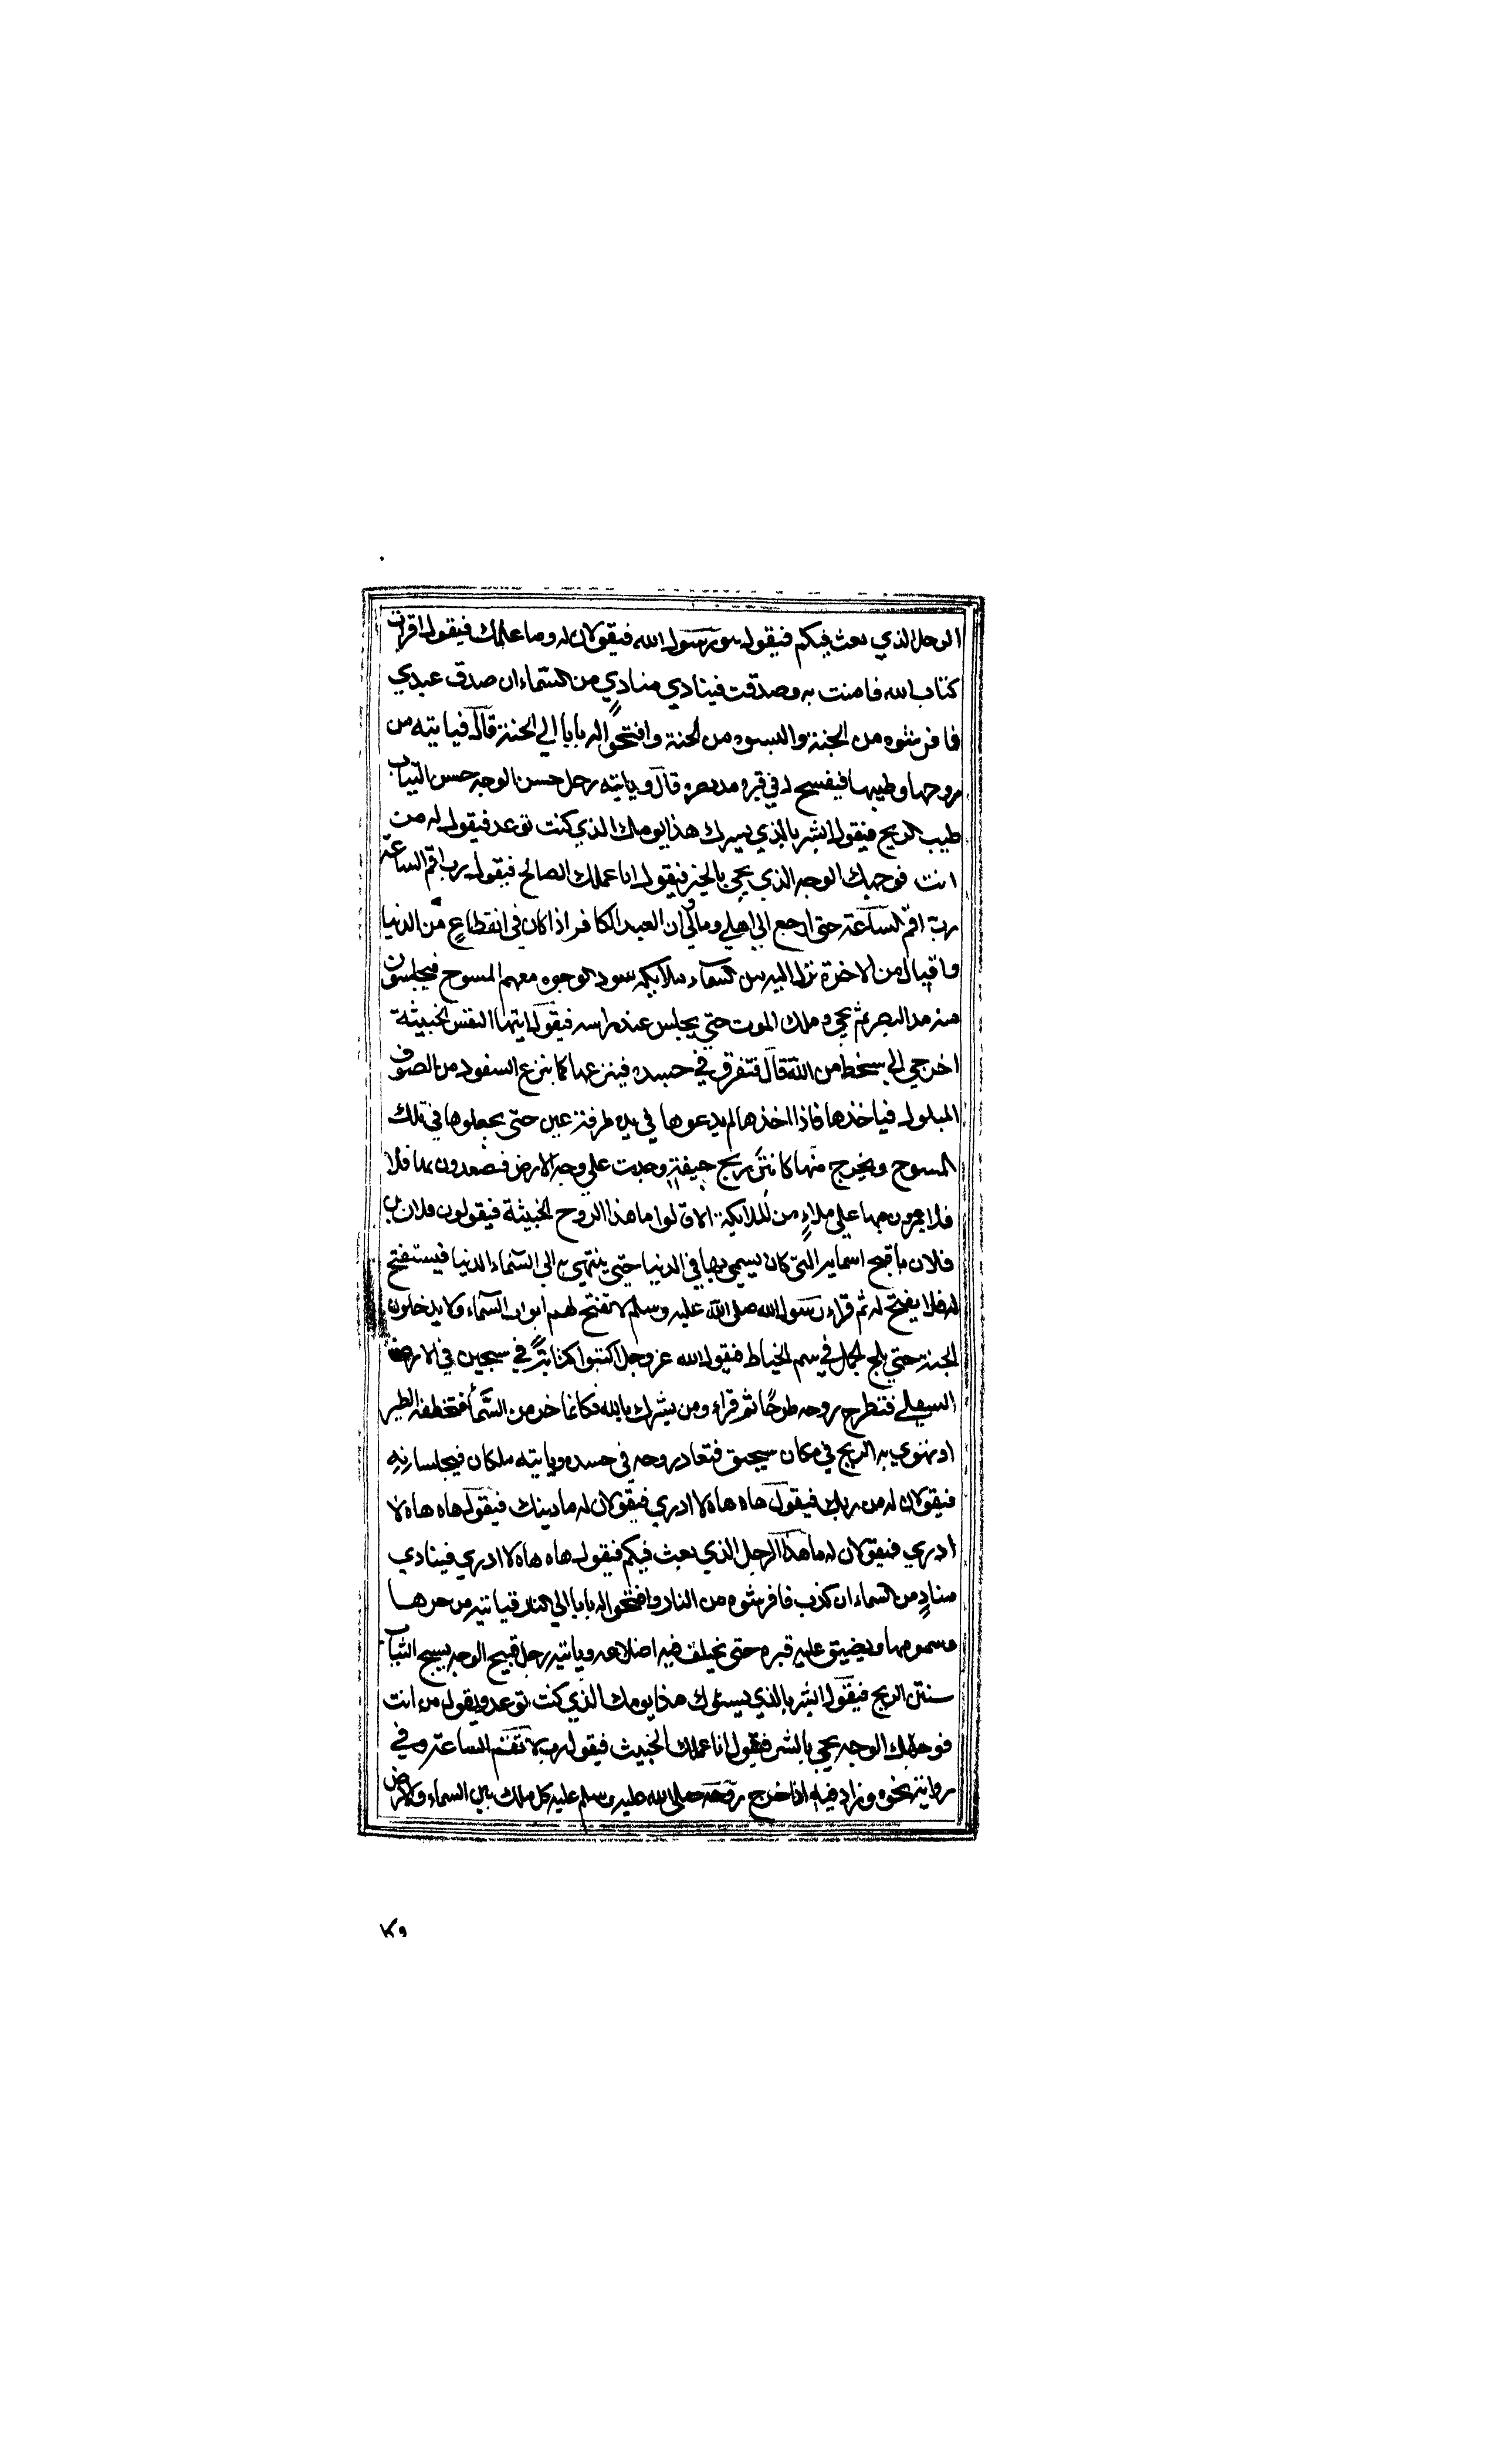 الرجل الذي بعث فيكم فيقول هو رسول الله فيقولان له وما علمك فيقول قرات
كتاب الله فامنت به وصدقت فينادي منادي من السماء ان صدق عبدي
فافرشوه من الجنة والبسوه من الجنة وافتحوا له بابا الي الجنة قال فياتيه من
روحها وطيبها فيفسح له في قبره مد بصره قال وياتيه رجل حسن الوجه حسن الثياب
طيب الريح فيقول ابشر بالذي يسرك هذا يومك الذي كنت توعد فيقول له من
انت فوجهك الوجه الذي يجي بالخير فيقول انا عملك الصالح فيقول رب اقم الساعة
رب اقم الساعة حتى ارجع الي اهلي ومالي وان العبد الكافر اذا كان في انقطاع من الدنيا
واقبال من الاخرة نزل اليه من السماء ملايكة سود الوجوه معهم المسوح فيجلسون
منه مد البصر ثم يجيء ملك الموت حتي يجلس عند راسه فيقول ايتها النفس الخبيثة
اخرجي الي سخط من الله قال فتفرق في جسده فينزعها كما ينزع السفود من الصوف
المبلول فياخذها فاذا اخذها لم يدعوها في يده طرفة عين حتى يجعلوها في تلك
المسوح ويخرج منها كانتن ريح جيفة وجدت علي وجه الارض فيصعدون بها فلا
فلا يمرون بها علي ملاء من الملايكة الا قالوا ما هذا الروح الخبيثة فيقولون فلان بن
فلان باقبح اسمايه التي كان يسمي بها في الدنيا حتي ينتهي به الي السماء الدنيا فيستفتح
له فلا يفتح له ثم قراء رسول الله صلى الله عليه وسلم لا تفتح لهم ابواب السماء ولا يدخلون
الجنة حتي يلج الجمل في سم الخياط فيقول الله عز وجل اكتبوا كتابه في سجين في الارض
السفلي فتطرح روحه طرحا ثم قراء ومن يشرك بالله فكانما خر من السماء فتخطفه الطير
او تهوي به الريح في مكان سحيق فتعاد روحه في جسده وياتيه ملكان فيجلسانه
فيقولان له من ربك فيقول هاه هاه لا ادري فيقولان له ما دينك فيقول هاه هاه لا
ادري فيقولان له ما هذا الرجل الذي بعث فيكم فيقول هاه هاه لا ادري فينادي
مناد من السماء ان كذب فافرشوه من النار وافتحوا له بابا الي النار فياتيه من حرها
وسمومها ويضيق عليه قبره حتى تختلف فيه اضلاعه وياتيه رجل قبيح الوجه قبيح الثياب
منتن الريح فيقول ابشر بالذي يسوءك هذا يومك الذي كنت توعد فيقول من انت
فوجهك الوجه يجي بالشر فيقول انا عملك الخبيث فيقول رب لا تقم الساعة وفي
رواية نحوه وزاد فيه اذا خرج روحه صلى الله عليه وسلم عليه كل ملك بين السماء والارض
وكل